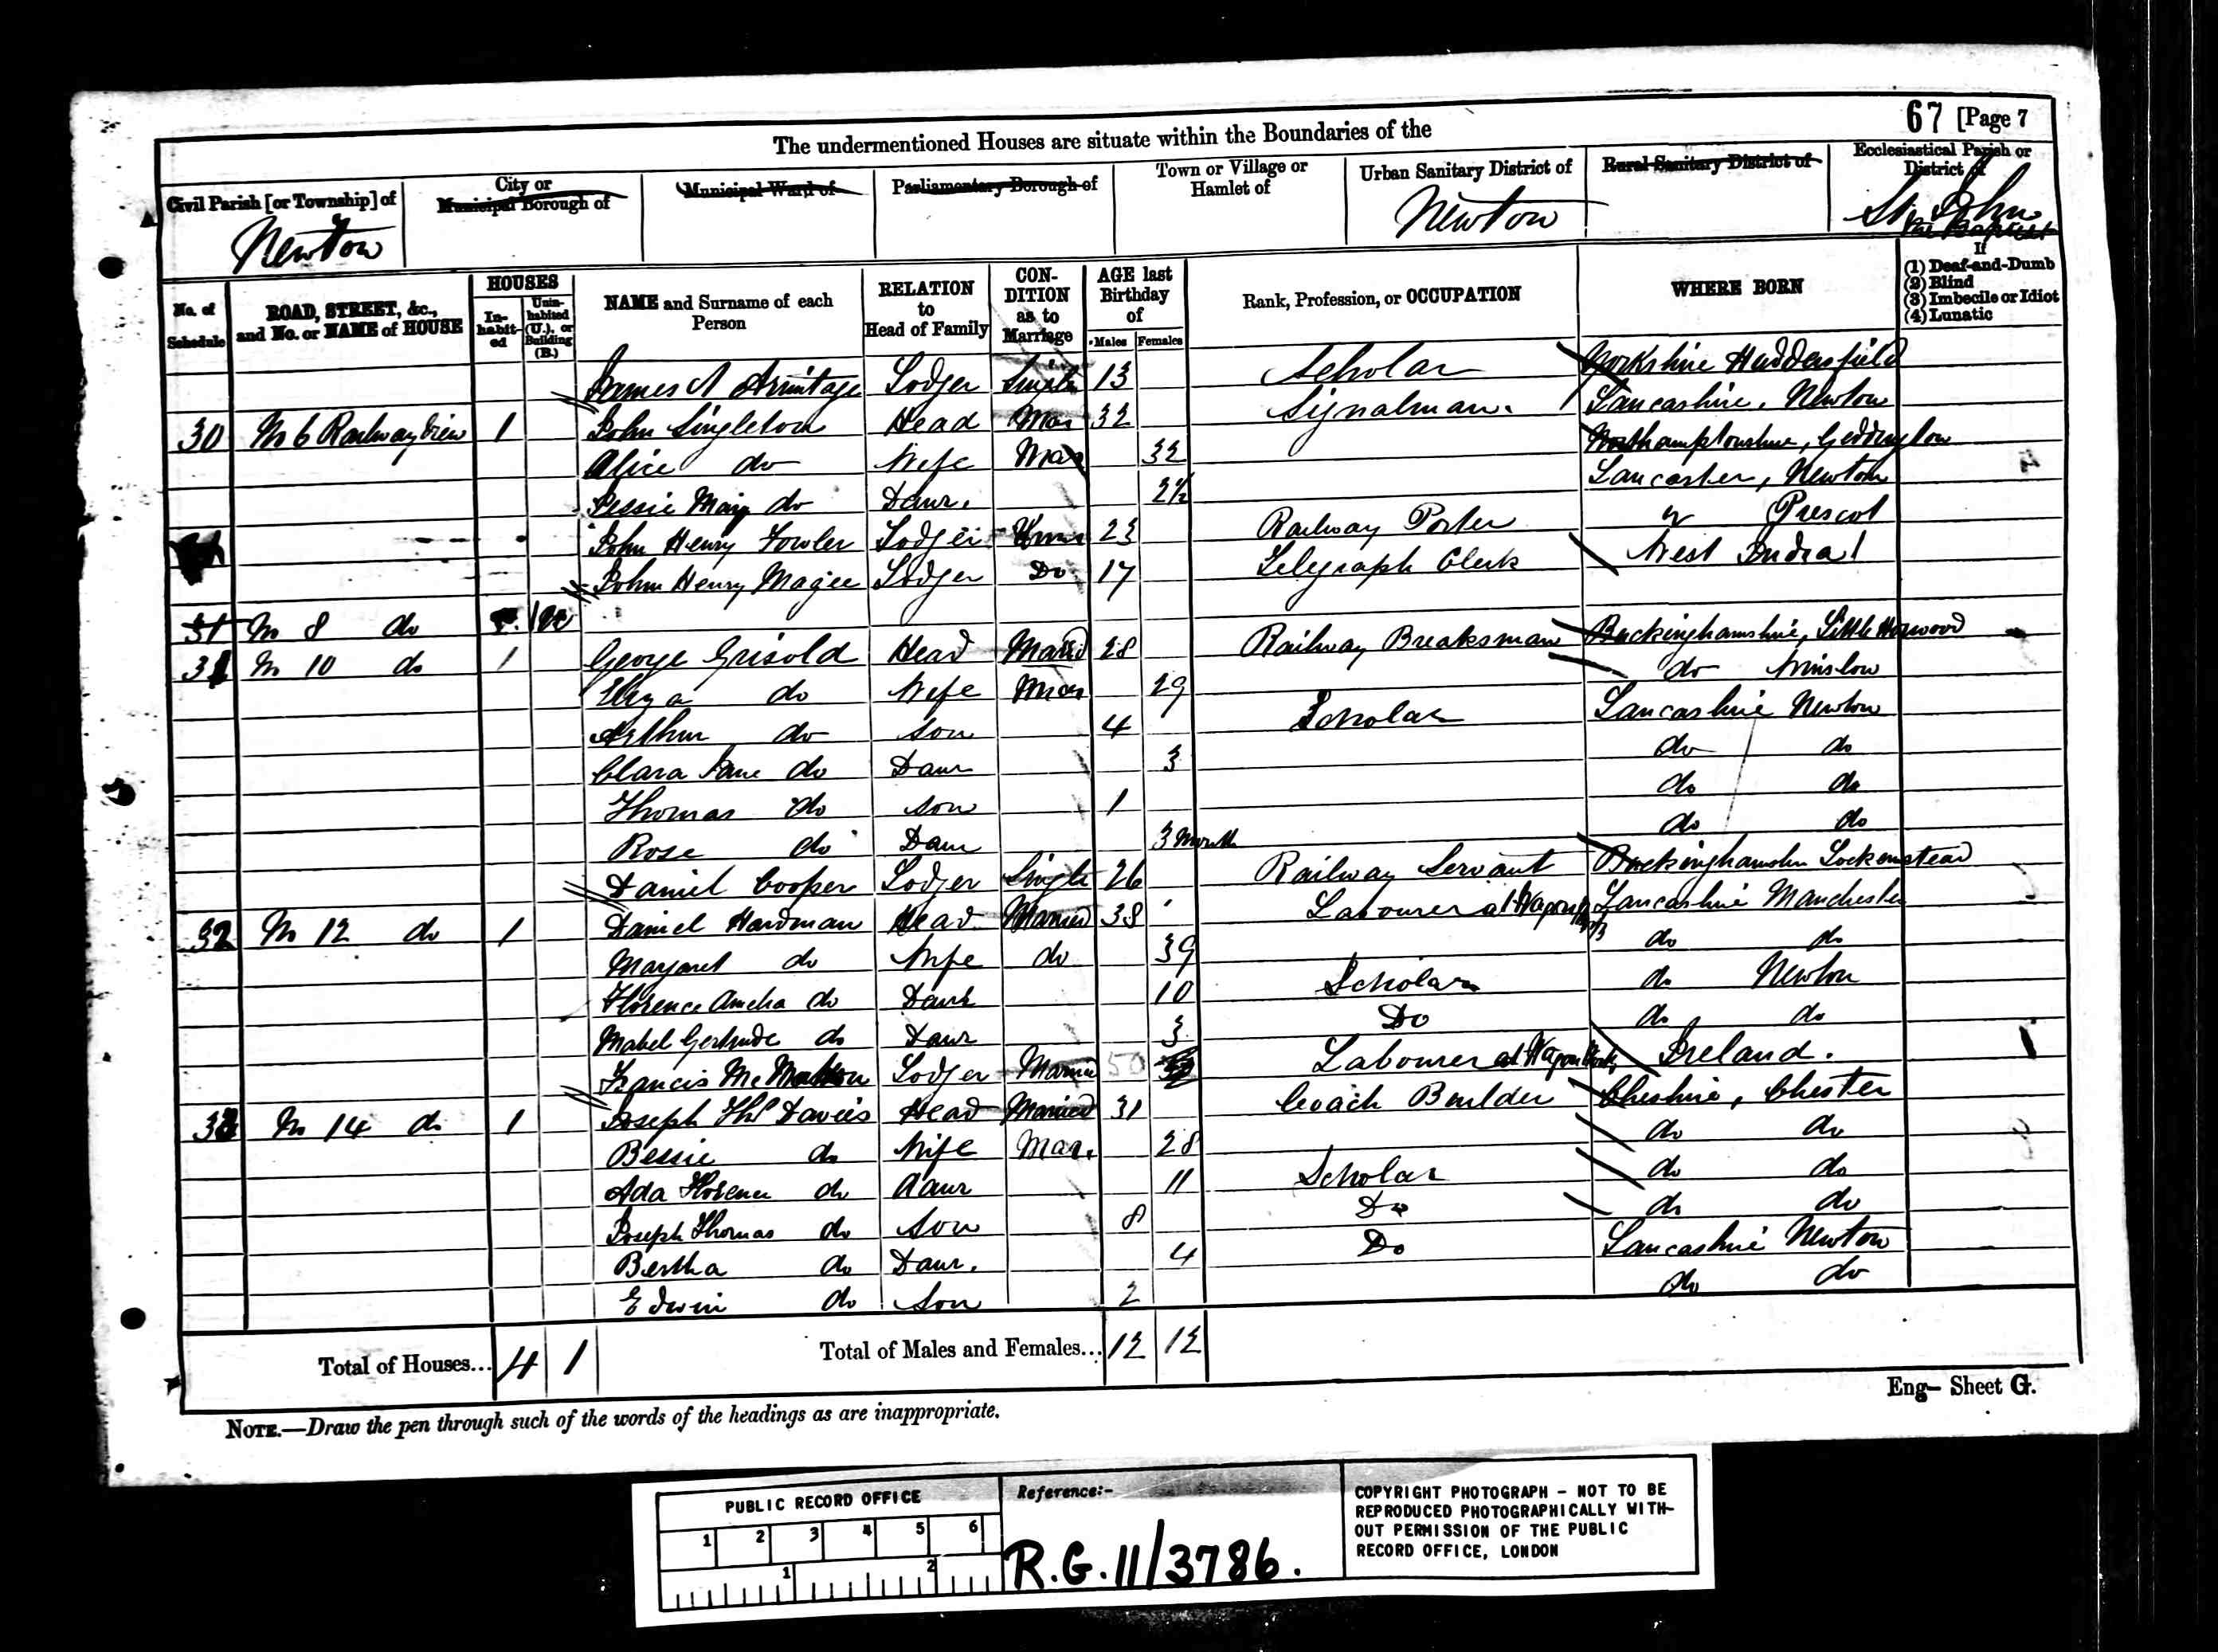 67 [Page 7
The undermentioned Houses are situate within the Boundaries of the
Civil Parish [or Township] of
Newton
City or Municipal Borough of
Municipal Ward of
Parliamentary Borough of
Town or Village or Hamlet of
Urban Sanitary District of
Newton
Rural Sanitary District of
Ecclesiastical Parish or District of
St John
the Baptist
No. of Schedule
ROAD, STREET, &c., and No. or NAME of HOUSE
HOUSES
In-habit-ed
Unin-habited (U.), or Building (B.)
NAME and Surname of each Person
RELATION to Head of Family
CON-DITION as to Marriage
AGE last Birthday of
Males Females
Rank, Profession, or OCCUPATION
WHERE BORN
If
(1) Deaf-and-Dumb
(2) Blind
(3) Imbecile or Idiot
(4) Lunatic
James A Armitage Lodger Single 13 Scholar Yorkshire Huddersfield
30 No 6 Railway View 1 John Singleton Head Mar 32 Signalman. Lancashire, Newton
Alice do Wife Mar 32 Northamptonshire, Geddington
Jessie Mary do Daur. 2½ Lancaster, Newton
John Henry Fowler Lodger Unm 23 Railway Porter Prescot
John Henry Magee Lodger Do 17 Telegraph Clerk West India
31 No 8 do 1
31 No 10 do 1 George Grisold Head Marrd 28 Railway Breaksman Buckinghamshire, Little Horwood
Eliza do Wife Mar 29 do Winslow
Arthur do Son 4 Scholar Lancashire Newton
Clara Jane do Daur 3 do do
Thomas do Son 1 do do
Rose do Daur 3 Month do do
Daniel Cooper Lodger Single 26 Railway Servant Buckinghamshr Lockenstead
32 No 12 do 1 Daniel Hardman Head Married 38 Labourer at Wagon Lancashire Manchester
Margaret do Wife do 39 do do
Florence Amelia do Daur 10 Scholar do Newton
Mabel Gertrude do Daur 3 Do do do
Francis McMahon Lodger Married 50 Labourer at Wagon Works Ireland.
33 No 14 do 1 Joseph Thos Davies Head Married 31 Coach Builder Cheshire, Chester
Bessie do Wife Mar. 28 do do
Ada Florence do Daur 11 Scholar do do
Joseph Thomas do Son 8 Do do do
Bertha do Daur. 4 Do Lancashire Newton
Edwin do Son 2 do do
Total of Houses... 4 1 Total of Males and Females... 12 12
Eng— Sheet G.
NOTE.—Draw the pen through such of the words of the headings as are inappropriate.
PUBLIC RECORD OFFICE
1 2 3 4 5 6
1 2
Reference:-
R.G. 11/3786.
COPYRIGHT PHOTOGRAPH – NOT TO BE
REPRODUCED PHOTOGRAPHICALLY WITH-
OUT PERMISSION OF THE PUBLIC
RECORD OFFICE, LONDON